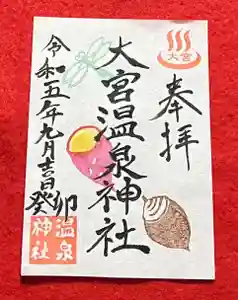 大宮
奉拝
大宮温泉神社
令和五年九月吉日癸卯
温泉
神社